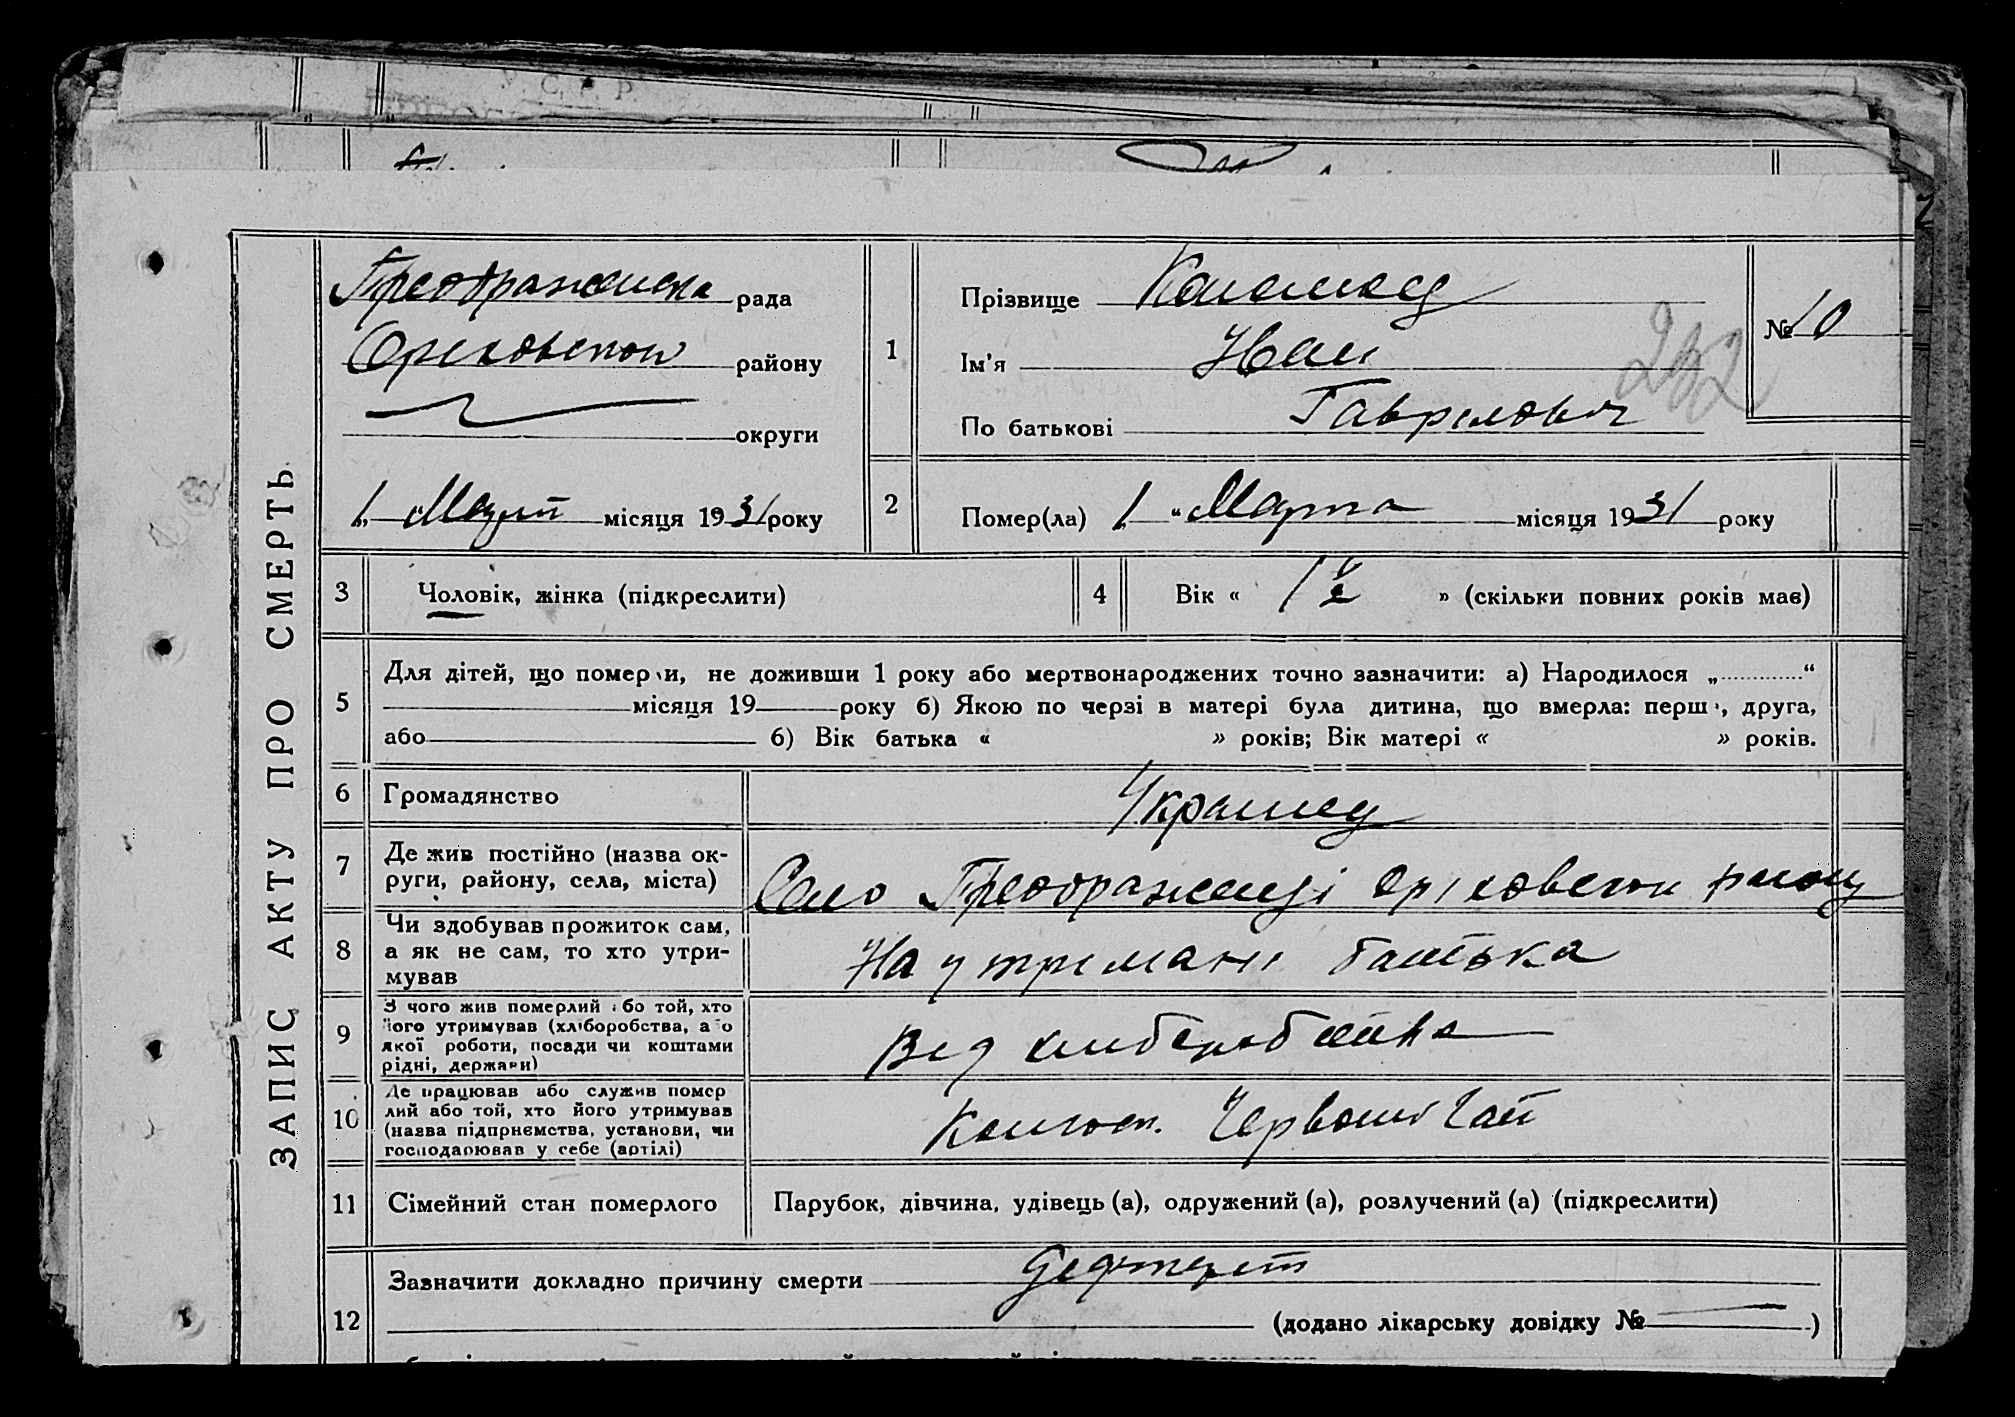 ЗАПИС АКТУ ПРО СМЕРТЬ
Преображенска рада
Оріховского району
округи
1 Март місяця 1931 року
1
Прізвище
Ім'я Иван
По батькові Гаврілович
№ 10
2
Помер(ла) „1“ Марта місяця 1931 року
3 Чоловік, жінка (підкреслити)
4 Вік « 1 ½ » (скільки повних років має)
5 Для дітей, що померли, не доживши 1 року або мертвонароджених точно зазначити: а) Народилося „ “
місяця 19 року б) Якою по черзі в матері була дитина, що вмерла: перша, друга,
або б) Вік батька « » років; Вік матері « » років.
6 Громадянство Украинец
7 Де жив постійно (назва ок-
руги, району, села, міста) Село Преображенці Оріховского району
8 Чи здобував прожиток сам,
а як не сам, то хто утри-
мував На утримані батька
9 З чого жив померлий або той, хто
його утримував (хліборобства, або
якої роботи, посади чи коштами
рідні, держави) Від хліборобства
10 Де працював або служив помер
лий або той, хто його утримував
(назва підприємства, установи, чи
господарював у себе (артілі) Червоний Гай
11 Сімейний стан померлого Парубок, дівчина, удівець (а), одружений (а), розлучений (а) (підкреслити)
12 Зазначити докладно причину смерти Дефтерит
(додано лікарську довідку № )